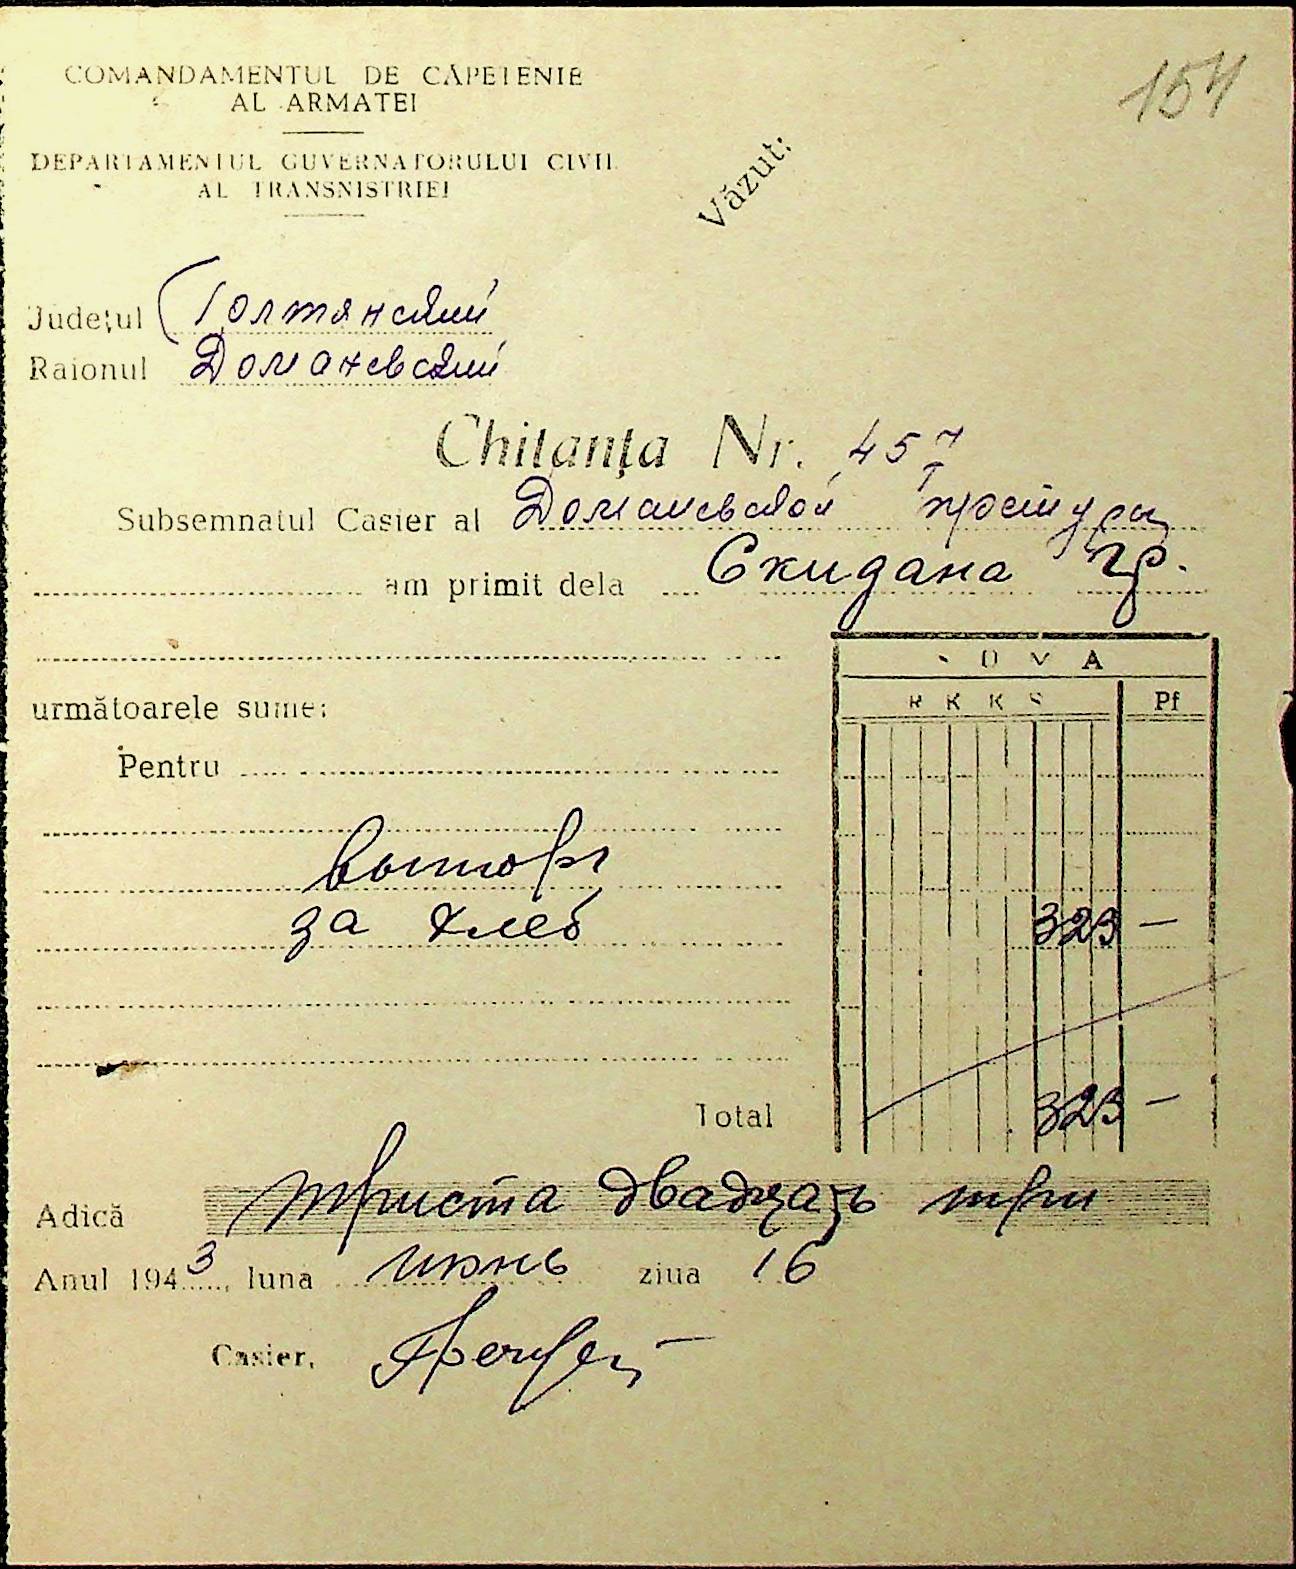 154
COMANDAMENTUL DE CĂPETENIE
AL ARMATEI
DEPARTAMENTUL GUVERNATORULUI CIVIL
AL TRANSNISTRIEI
Văzut:
Județul Голтянский
Raionul Доманевский
Chitanța Nr. 457
Subsemnatul Casier al Доманевской претуры
am primit dela Скидана Гр.
SUMA
următoarele sume:
R K K S Pf
Pentru
выторг
за хлеб 323 —
Total 323 —
Adică триста двадцать три
Anul 1943, luna июнь ziua 16
Casier,